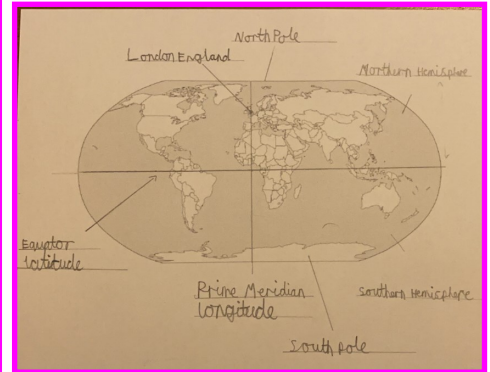 North Pole
London England
Northern Hemisphere
Equator
latitude
Prime Meridian
longitude
Southern Hemisphere
South Pole